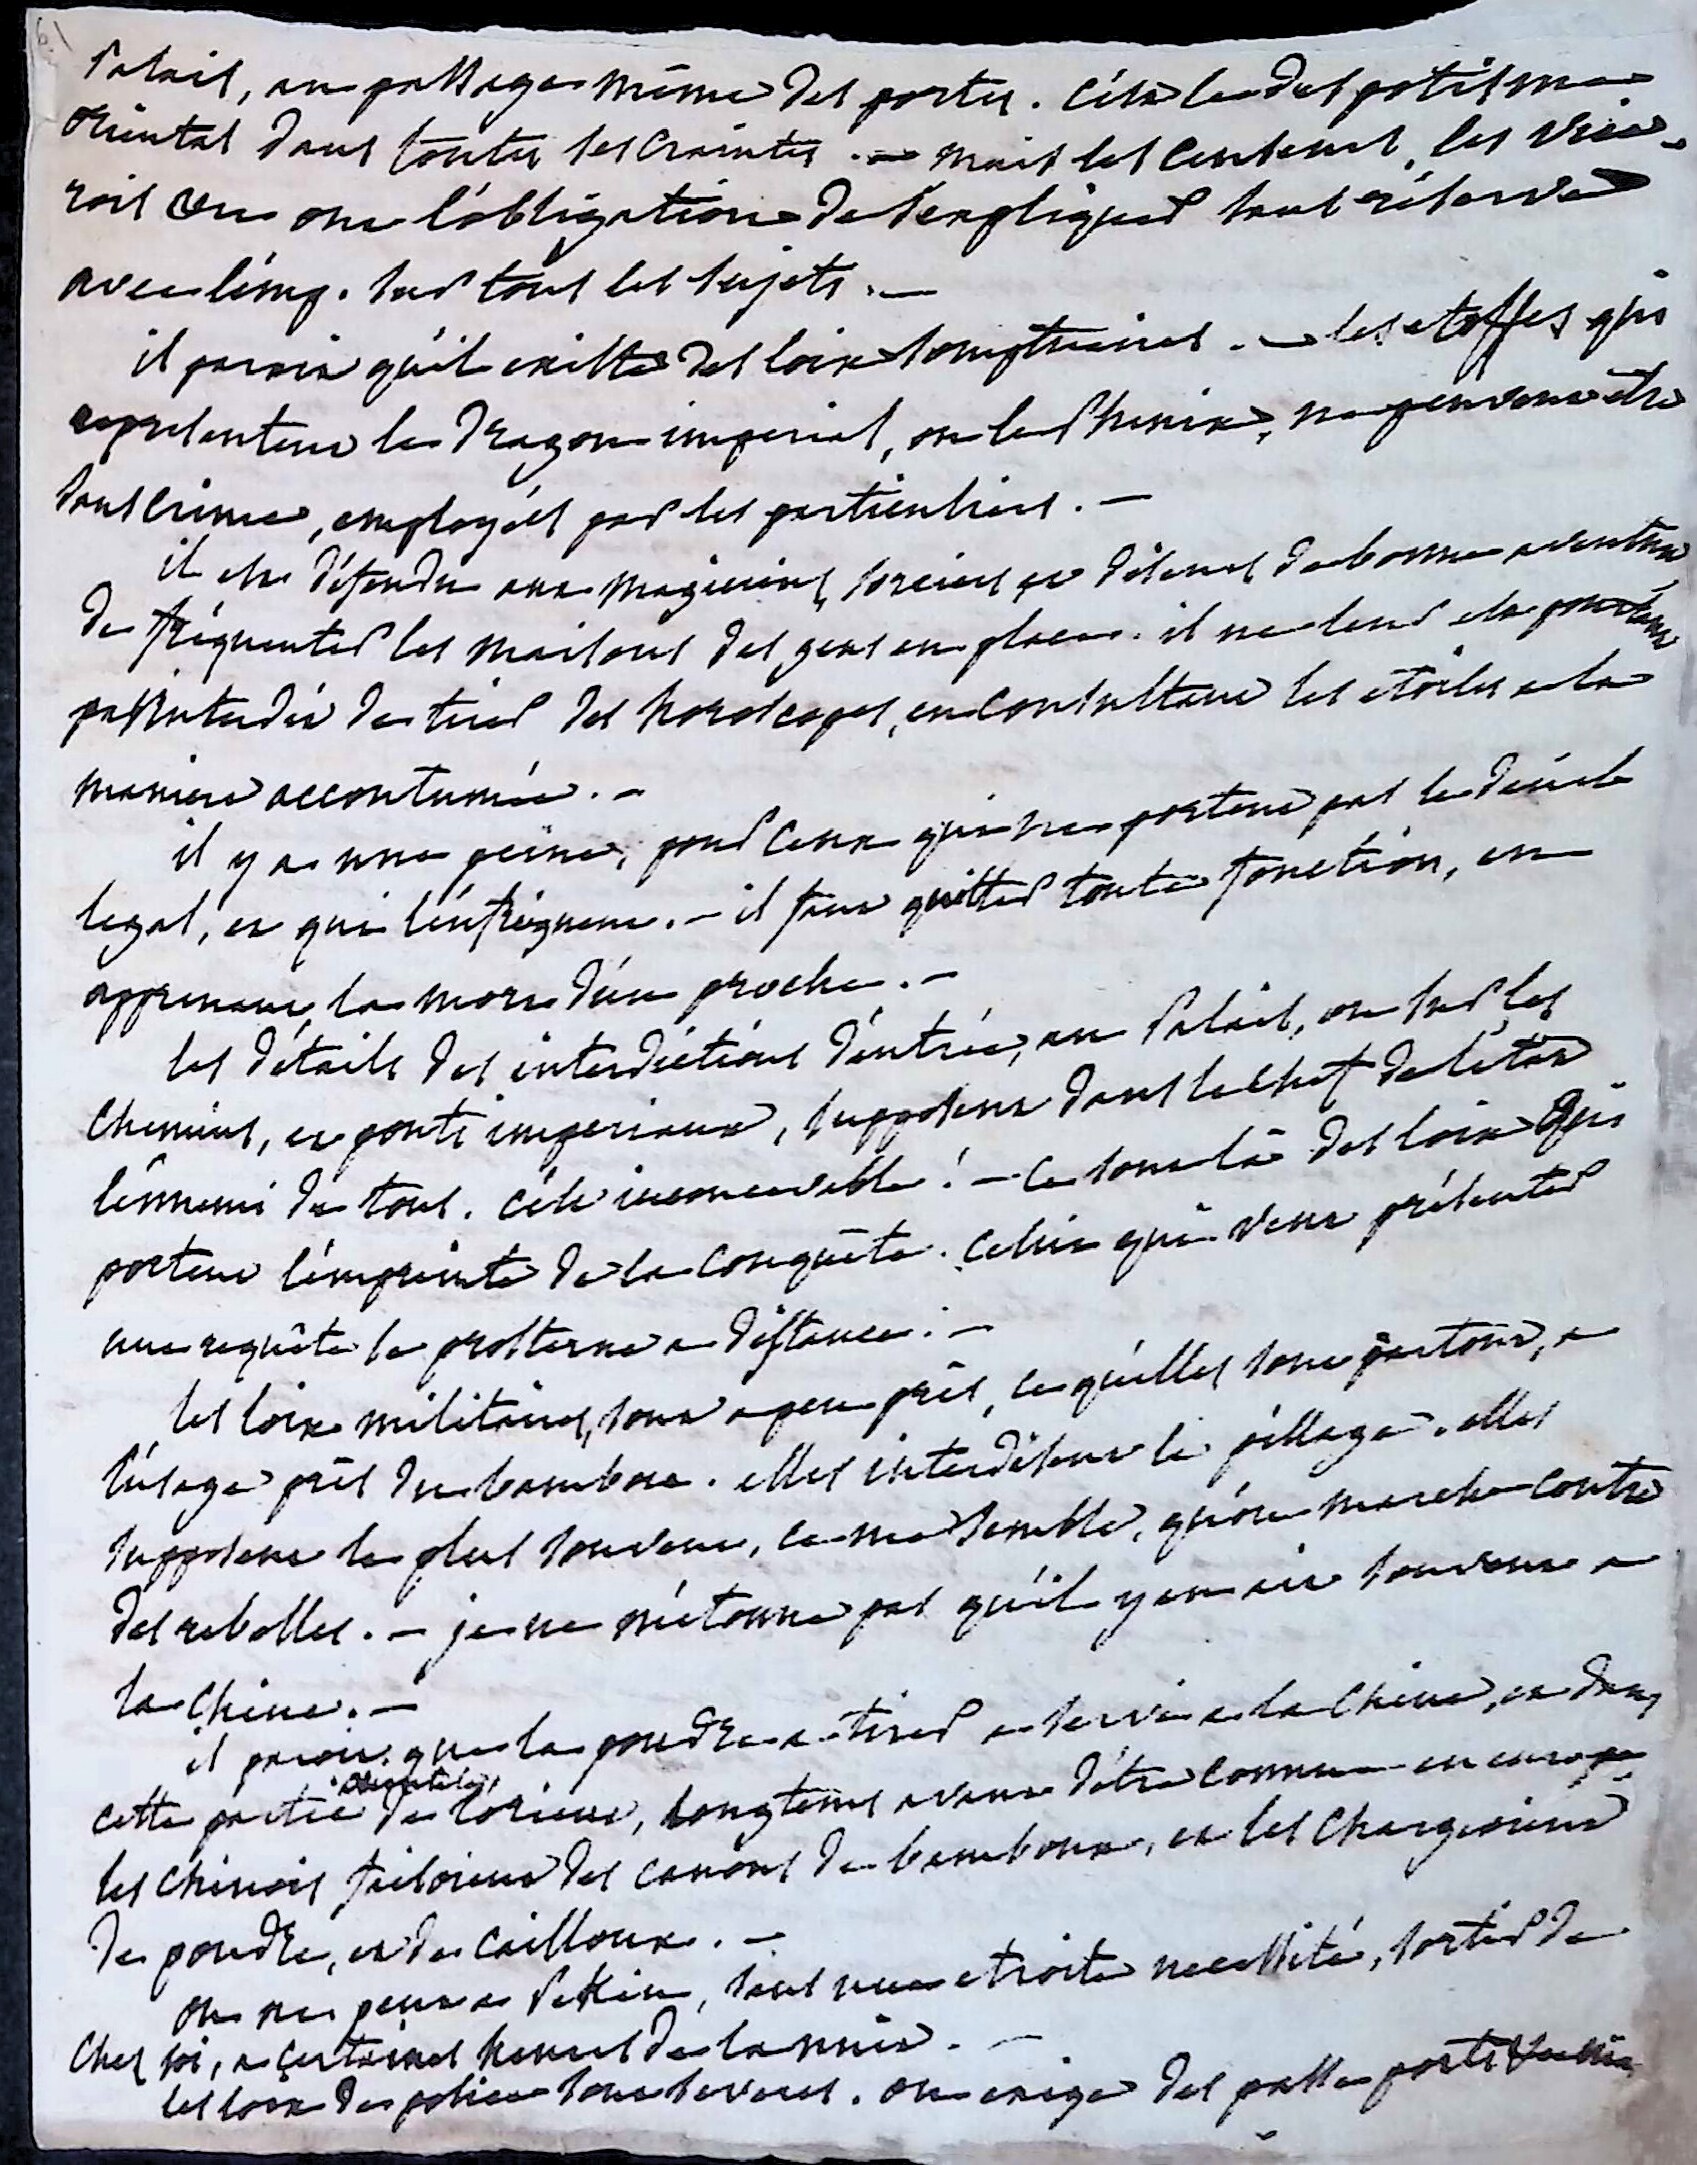 Palais, au passage même des portes. c'est le despotisme
oriental dans toutes ses craintes. — mais les censeurs, les vice-
rois &c. ont l'obligation de s'expliquer sans réserve
avec l'emp. sur tous les sujets. —
il paroit qu'il existe des loix somptuaires. — les etoffes qui
représentent le dragon imperial, ou le phenix, ne peuvent être
sans crime, employées par les particuliers. —
il est défendu aux magiciens, sorciers et diseurs de bonne aventure
de fréquenter les maisons des gens en place. il ne leur est pourtant
pas interdit de tirer des horoscopes, en consultant les etoiles a la
maniere accoutumée. —
il y a une peine, pour ceux qui ne portent pas le deuil
legal, et qui l'enfreignent. — il faut quitter toute fonction, en
apprenant la mort d'un proche. —
les détails des interdictions d'entrée, au Palais, ou sur les
chemins, et ponts imperiaux, supposent dans le chef de l'état
l'ennemi de tous. c'est inconcevable! — ce sont là des loix qui
portent l'empreinte de la conquête. celui qui veut présenter
une requête se prosterne a distance. —
les loix militaires, sont a peu près, ce qu'elles sont partout, a
l'usage près du bambou. elles interdisent le pillage. elles
supposent le plus souvent, ce me semble, qu'on marche contre
des rebelles. — je ne m'etonne pas qu'il y en ait souvent a
la Chine. —
il paroit que la poudre a tirer a servi a la Chine, et dans
cette partie de l'orient, longtems avant d'être connue en europe
les chinois faisoient des canons de bamboux, et les chargeoient
de poudre, et de cailloux. —
on ne peut a Pekin, sans une etroite necessité, sortir de
chez soi, a certaines heures de la nuit. —
les loix de police sont severes. on exige des passe ports